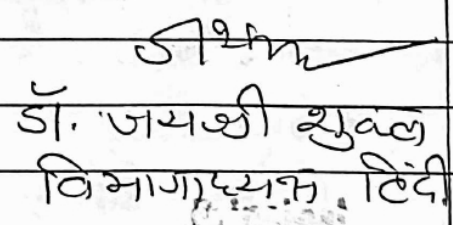 डॉ. जयश्री शुक्ल
विभागाध्यक्ष हिंदी